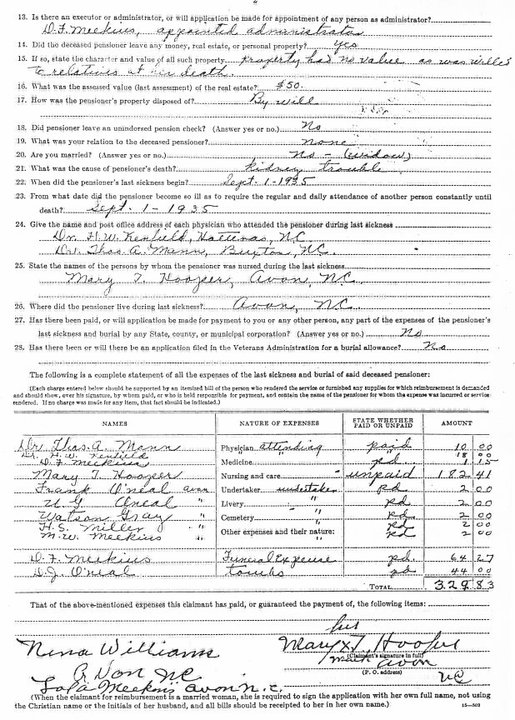 13. Is there an executor or administrator, or will application be made for appointment of any person as administrator?
D. F. Meekins, appointed administrator
14. Did the deceased pensioner leave any money, real estate, or personal property? Yes
15. If so, state the character and value of all such property. property had no value as was willed
to relatives at his death.
16. What was the assessed value (last assessment) of the real estate? $50.
17. How was the pensioner's property disposed of? By will
18. Did pensioner leave an unindorsed pension check? (Answer yes or no.) No
19. What was your relation to the deceased pensioner? none
20. Are you married? (Answer yes or no.) No - (widow)
21. What was the cause of pensioner's death? kidney trouble
22. When did the pensioner's last sickness begin? Sept. 1-1935
23. From what date did the pensioner become so ill as to require the regular and daily attendance of another person constantly until
death? Sept. 1- 1935
24. Give the name and post office address of each physician who attended the pensioner during last sickness
Dr. H. W. Kenfield, Hatteras, N.C.
Dr. Thos. A. Mann, Buxton, N.C.
25. State the names of the persons by whom the pensioner was nursed during the last sickness
Mary T. Hooper, Avon, N.C.
26. Where did the pensioner live during last sickness? Avon, N.C.
27. Has there been paid, or will application be made for payment to you or any other person, any part of the expenses of the pensioner's
last sickness and burial by any State, county, or municipal corporation? (Answer yes or no.) No
28. Has there been or will there be an application filed in the Veterans Administration for a burial allowance? No
The following is a complete statement of all the expenses of the last sickness and burial of said deceased pensioner:
(Each charge entered below should be supported by an itemized bill of the person who rendered the service or furnished any supplies for which reimbursement is demanded
and should show, over his signature, by whom paid, or who is held responsible for payment, and contain the name of the pensioner for whom the expense was incurred or service
rendered. If no charge was made for any item, that fact should be indicated.)
NAMES NATURE OF EXPENSES STATE WHETHER PAID OR UNPAID AMOUNT
Dr. Thos. A. Mann Physician attending paid 10 00
Dr. H. W. Kenfield " 18 00
D. F. Meekins Medicine pd. 1 15
Mary T. Hooper Nursing and care unpaid 182 41
Frank O'neal avon Undertaker undertaker pd 2 00
U. G. Oneal " Livery " pd. 2 00
Watson Gray " Cemetery " pd 2 00
H. S. Miller " Other expenses and their nature: pd 2 00
M. W. Meekins " " pd 2 00
D. F. Meekins Funeral Expense pd. 64 27
D. J. O'neal tombs pd 44 00
TOTAL 329 83
That of the above-mentioned expenses this claimant has paid, or guaranteed the payment of, the following items:
Nina Williams
Avon N.C.
Lola Meekins avon N.C.
her
Mary x T. Hooper
mark
(Claimant's signature in full)
avon
(P. O. address)
NC
(When the claimant for reimbursement is a married woman, she is required to sign the application with her own full name, not using
the Christian name or the initials of her husband, and all bills should be receipted to her in her own name.)